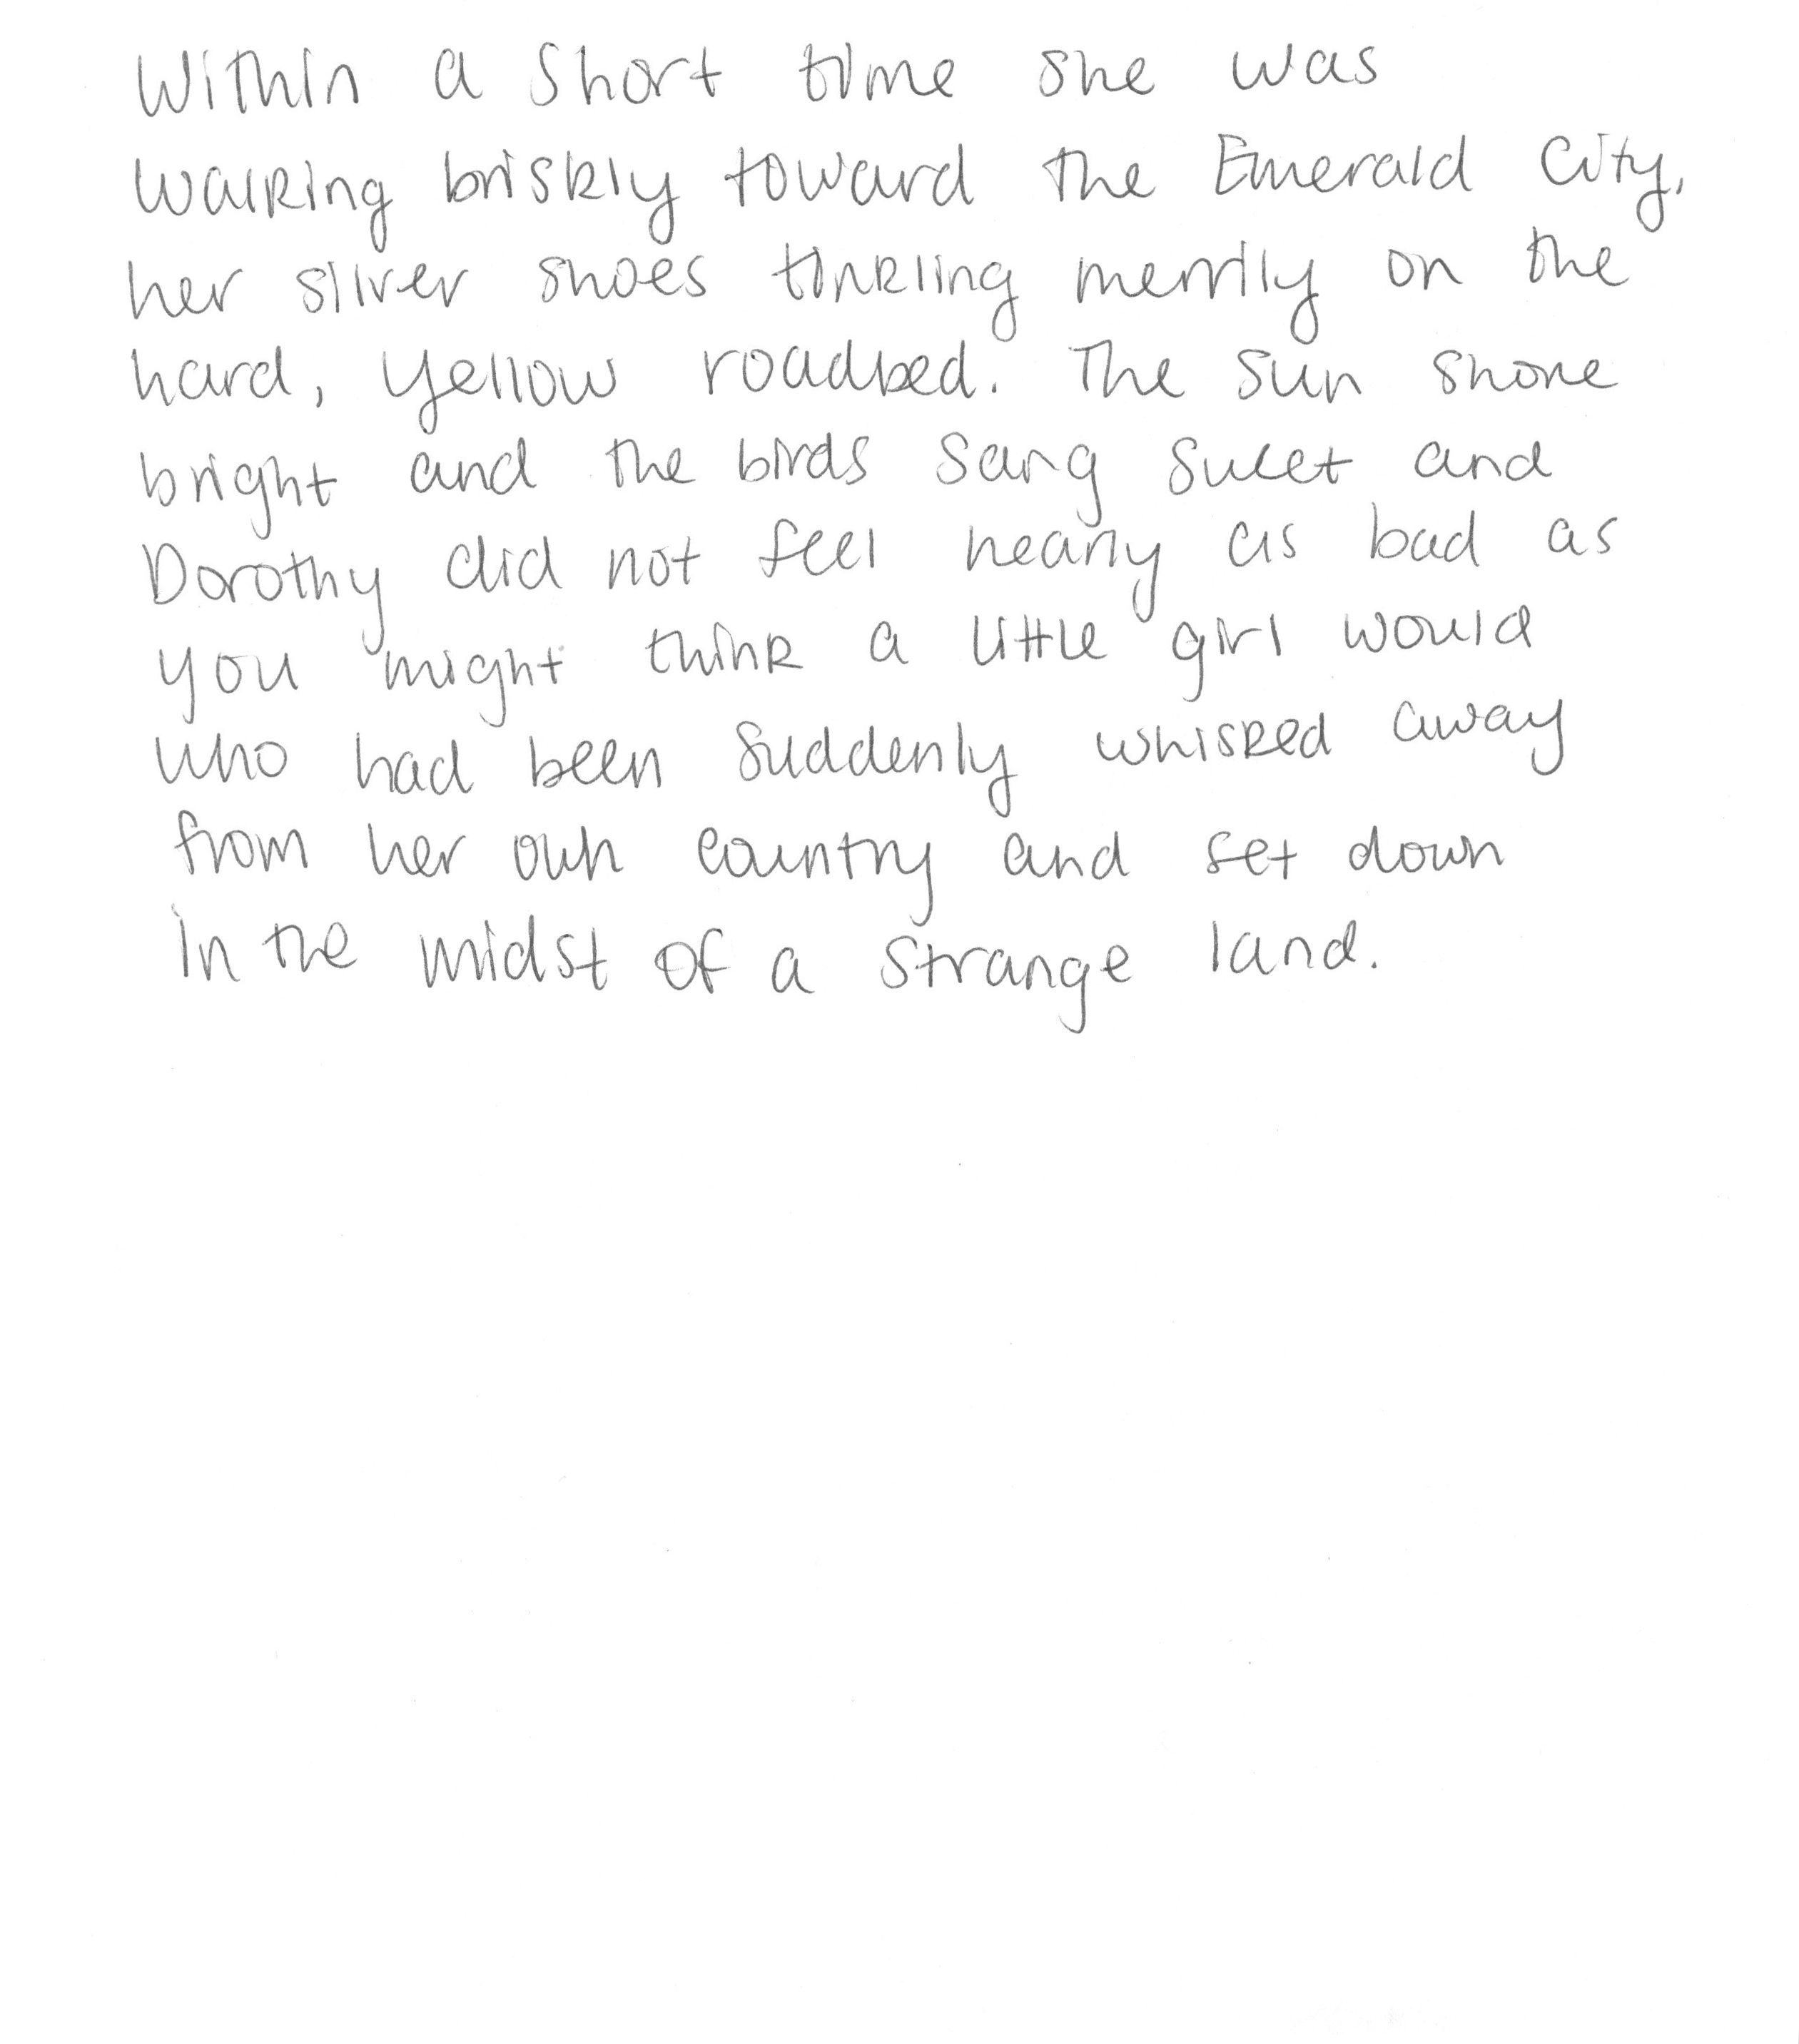 Within a short time she was
walking briskly toward the Emerald City,
her silver shoes tinkling merrily on the
hard, yellow roadbed. The sun shone
bright and the birds sang sweet and
Dorothy did not feel nearly as bad as
you might think a little girl would
who had been suddenly whisked away
from her own country and set down
in the midst of a strange land.